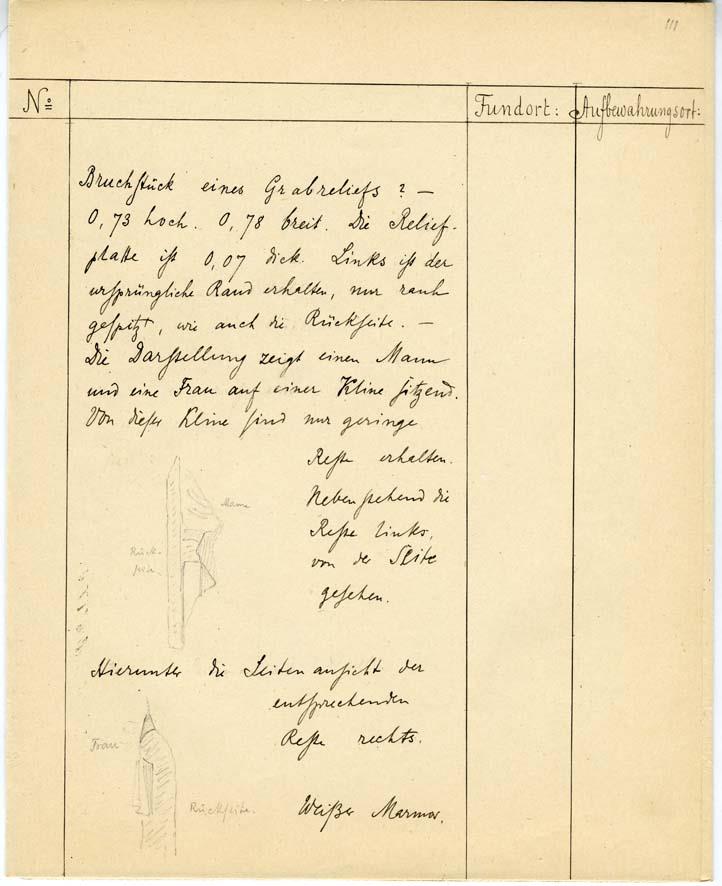 111
No
Fundort:
Aufbewahrungsort:
Bruchstück eines Grabreliefs? —
0,73 hoch. 0,78 breit. Die Relief-
platte ist 0,07 dick. Links ist der
ursprüngliche Rand erhalten, nur rauh
gespitzt, wie auch die Rückseite. —
Die Darstellung zeigt einen Mann
und eine Frau auf einer Kline sitzend.
Von dieser Kline sind nur geringe
Reste erhalten.
Nebenstehend die
Reste links,
von der Seite
gesehen.
Mann
Rück-
seite.
Hierunter die Seitenansicht der
entsprechenden
Reste rechts.
Frau
Rückseite.
Weißer Marmor.